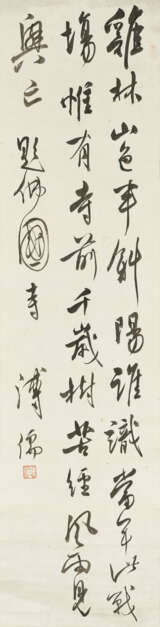 雞林山色半斜陽誰識當年此戰
塲惟有寺前千歲樹苦經風雨見
興亡 題佛國寺 溥儒